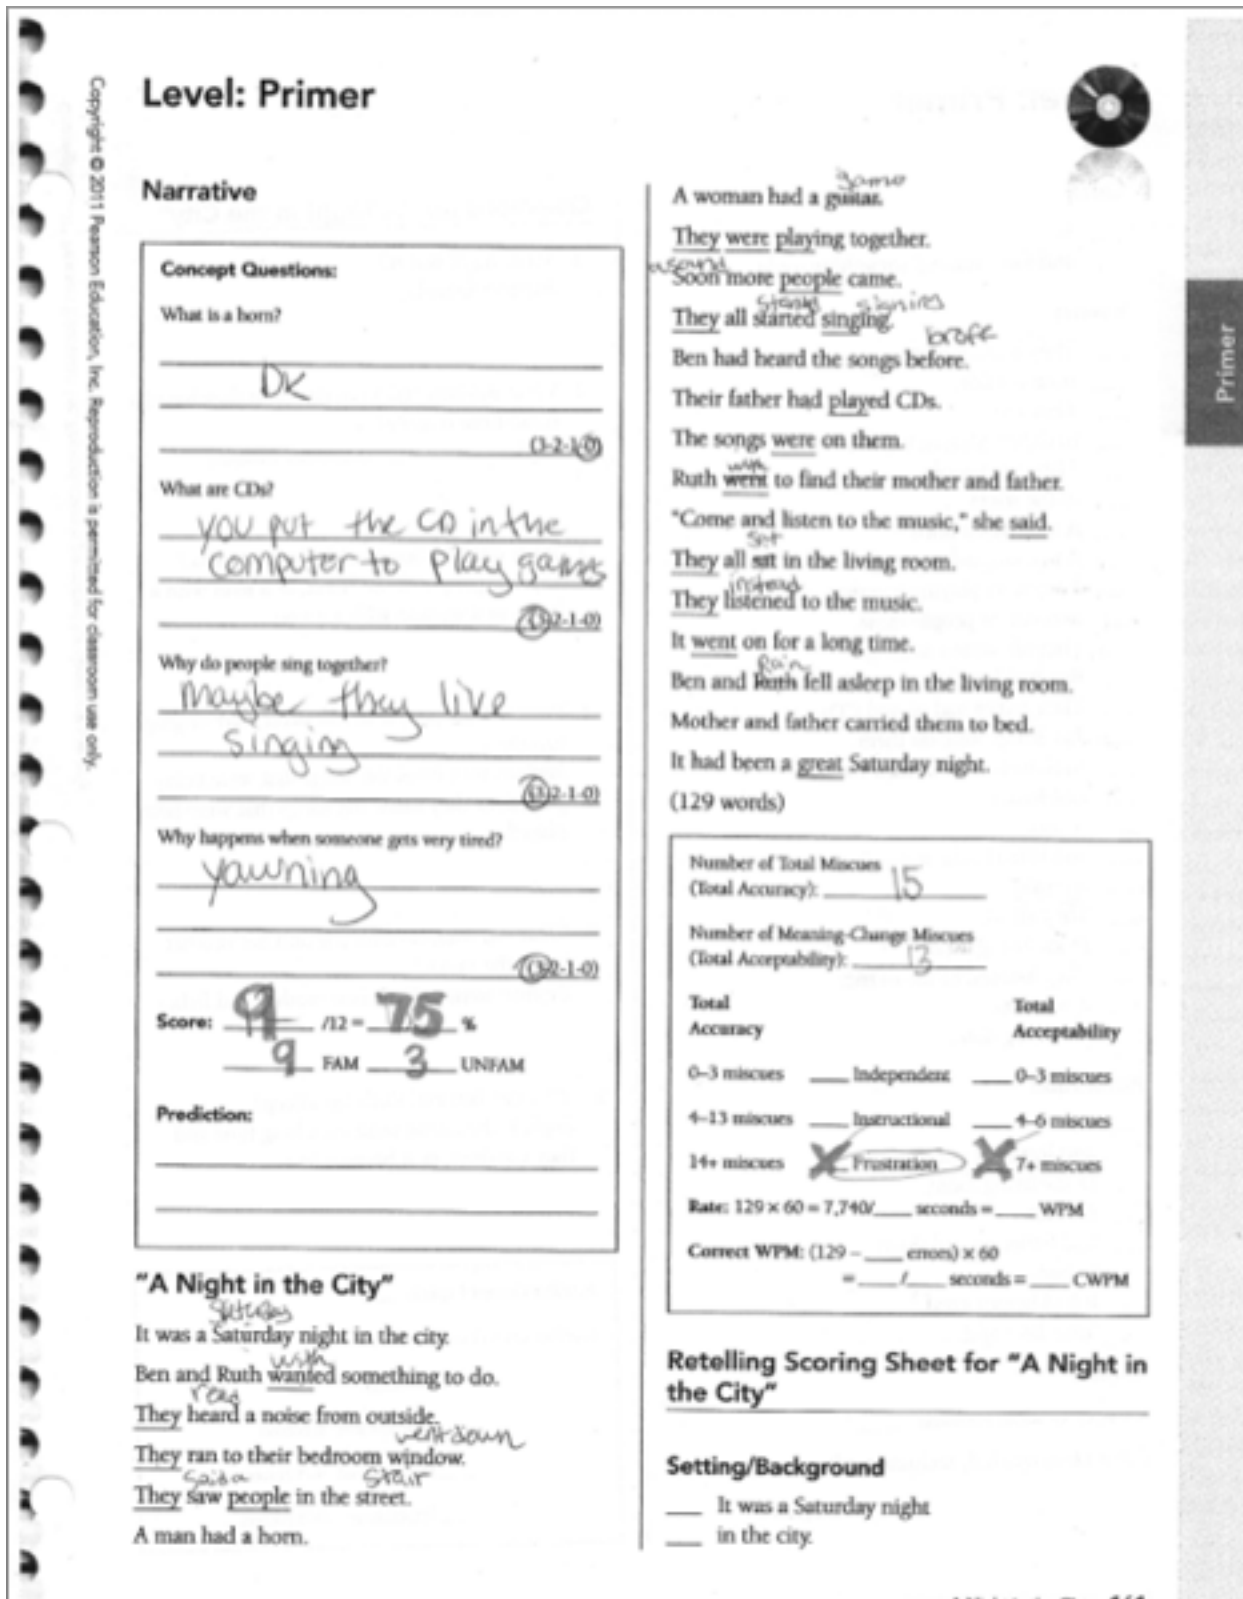 Level: Primer
Copyright © 2011 Pearson Education, Inc. Reproduction is permitted for classroom use only.
Narrative
Concept Questions:
What is a horn?
DK
(3-2-1-0)
What are CDs?
you put the CD in the
computer to play games
(3-2-1-0)
Why do people sing together?
Maybe they like
singing
(3-2-1-0)
Why happens when someone gets very tired?
yawning
(3-2-1-0)
Score: 9 /12 = 75 %
9 FAM 3 UNFAM
Prediction:
"A Night in the City"
It was a Saturday night in the city.
with
Ben and Ruth wanted something to do.
read
They heard a noise from outside.
went down
They ran to their bedroom window.
said a stair
They saw people in the street.
A man had a horn.
A woman had a guitar.
They were playing together.
Soon more people came.
signing
They all started singing.
broff
Ben had heard the songs before.
Their father had played CDs.
The songs were on them.
with
Ruth went to find their mother and father.
"Come and listen to the music," she said.
set
They all sat in the living room.
instead
They listened to the music.
It went on for a long time.
Rain
Ben and Ruth fell asleep in the living room.
Mother and father carried them to bed.
It had been a great Saturday night.
(129 words)
Number of Total Miscues
(Total Accuracy): 15
Number of Meaning-Change Miscues
(Total Acceptability): 13
Total Total
Accuracy Acceptability
0–3 miscues ___ Independent ___ 0–3 miscues
4–13 miscues ___ Instructional ___ 4–6 miscues
14+ miscues X Frustration X 7+ miscues
Rate: 129 × 60 = 7,740/____ seconds = ____ WPM
Correct WPM: (129 – ____ errors) × 60
= ____/____ seconds = ____ CWPM
Retelling Scoring Sheet for "A Night in
the City"
Setting/Background
___ It was a Saturday night
___ in the city.
Primer